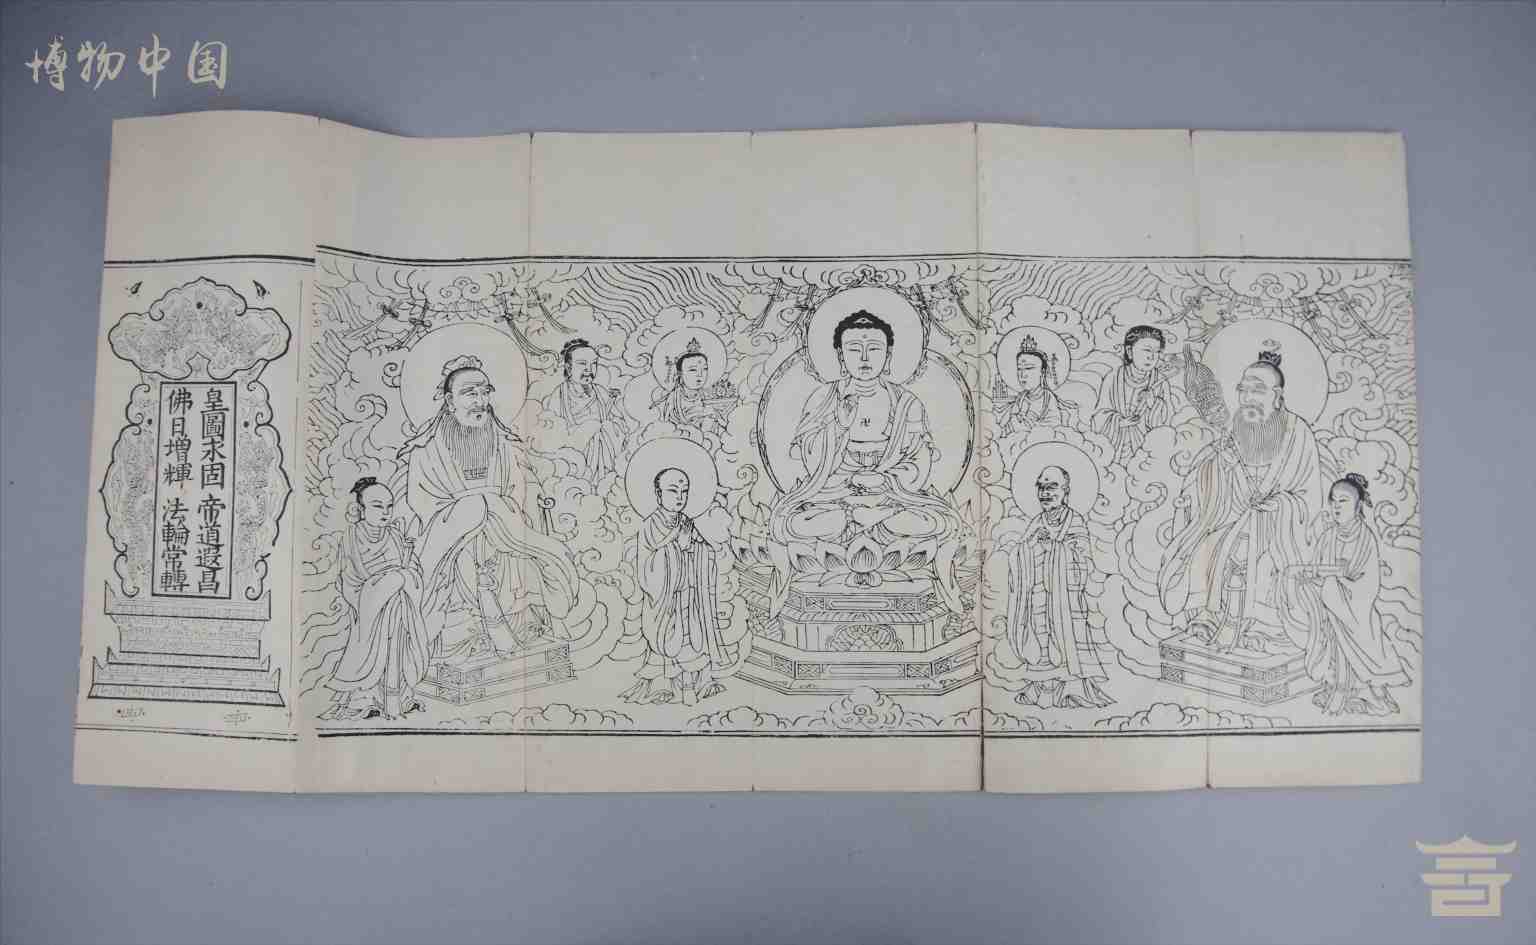 博物中国
皇圖永固 帝道遐昌
佛日增輝 法輪常轉
卍